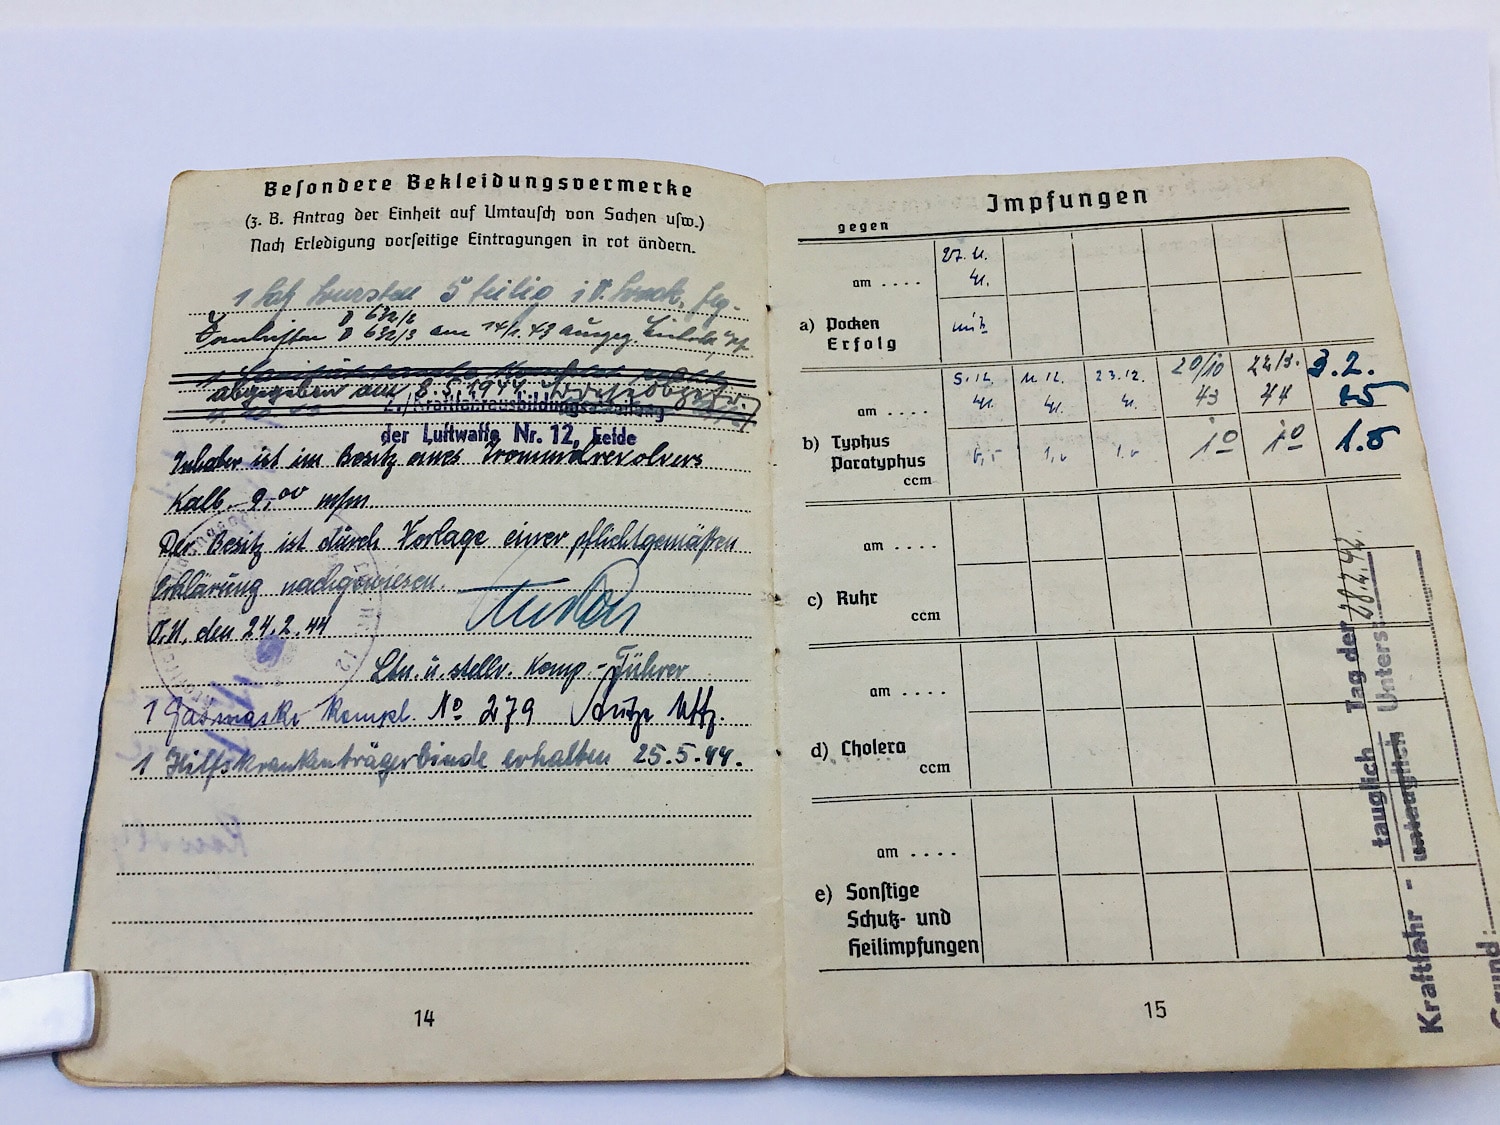 Besondere Bekleidungsvermerke
(z. B. Antrag der Einheit auf Umtausch von Sachen usw.)
Nach Erledigung vorseitige Eintragungen in rot ändern.
1 Satz 5 teilig
D 632/2
D 632/3 am 14/1. 43 ausgeg.
abgegeben am 8.5.1944
Kraftfahrausbildungsabteilung
der Luftwaffe Nr. 12, Eelde
Inhaber ist im Besitz eines Trommelrevolvers
Kalb. 9,00 m/m.
Der Besitz ist durch Vorlage einer pflichtgemäßen
Erklärung nachgewiesen.
O.U. den 24.2.44
Ltn. u. stellv. Komp.-Führer
1 Gasmaske kompl. No 279 Uffz.
1 Hilfskrankenträgerbinde erhalten 25.5.44.
14
Impfungen
gegen
am . . . .
27. 11.
41.
a) Pocken
Erfolg
mit
am . . . .
5. 12. 41.
11. 12. 41.
23. 12. 41.
20/10 43
22/3. 44
3. 2. 45
b) Typhus
Paratyphus
ccm
0,5
1,0
1,0
1.0
1.0
1.5
am . . . .
c) Ruhr
ccm
am . . . .
d) Cholera
ccm
am . . . .
e) Sonstige
Schutz- und
Heilimpfungen
Kraftfahr - tauglich
untauglich
Tag der
Unters:
Grund:
15